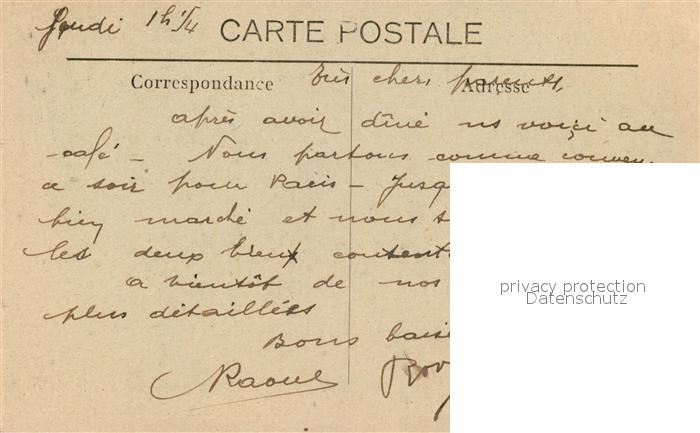 Jeudi 1h 1/4 CARTE POSTALE
Correspondance Adresse
Très chers parents,
après avoir dîné ns voiçi au
-café- Nous partons comme conven
ce soir pour Paris - Jusq
bien marché et nous s
les deux bien content
a bientôt de nos
plus détaillées
Bons baise
Raoul
privacy protection
Datenschutz